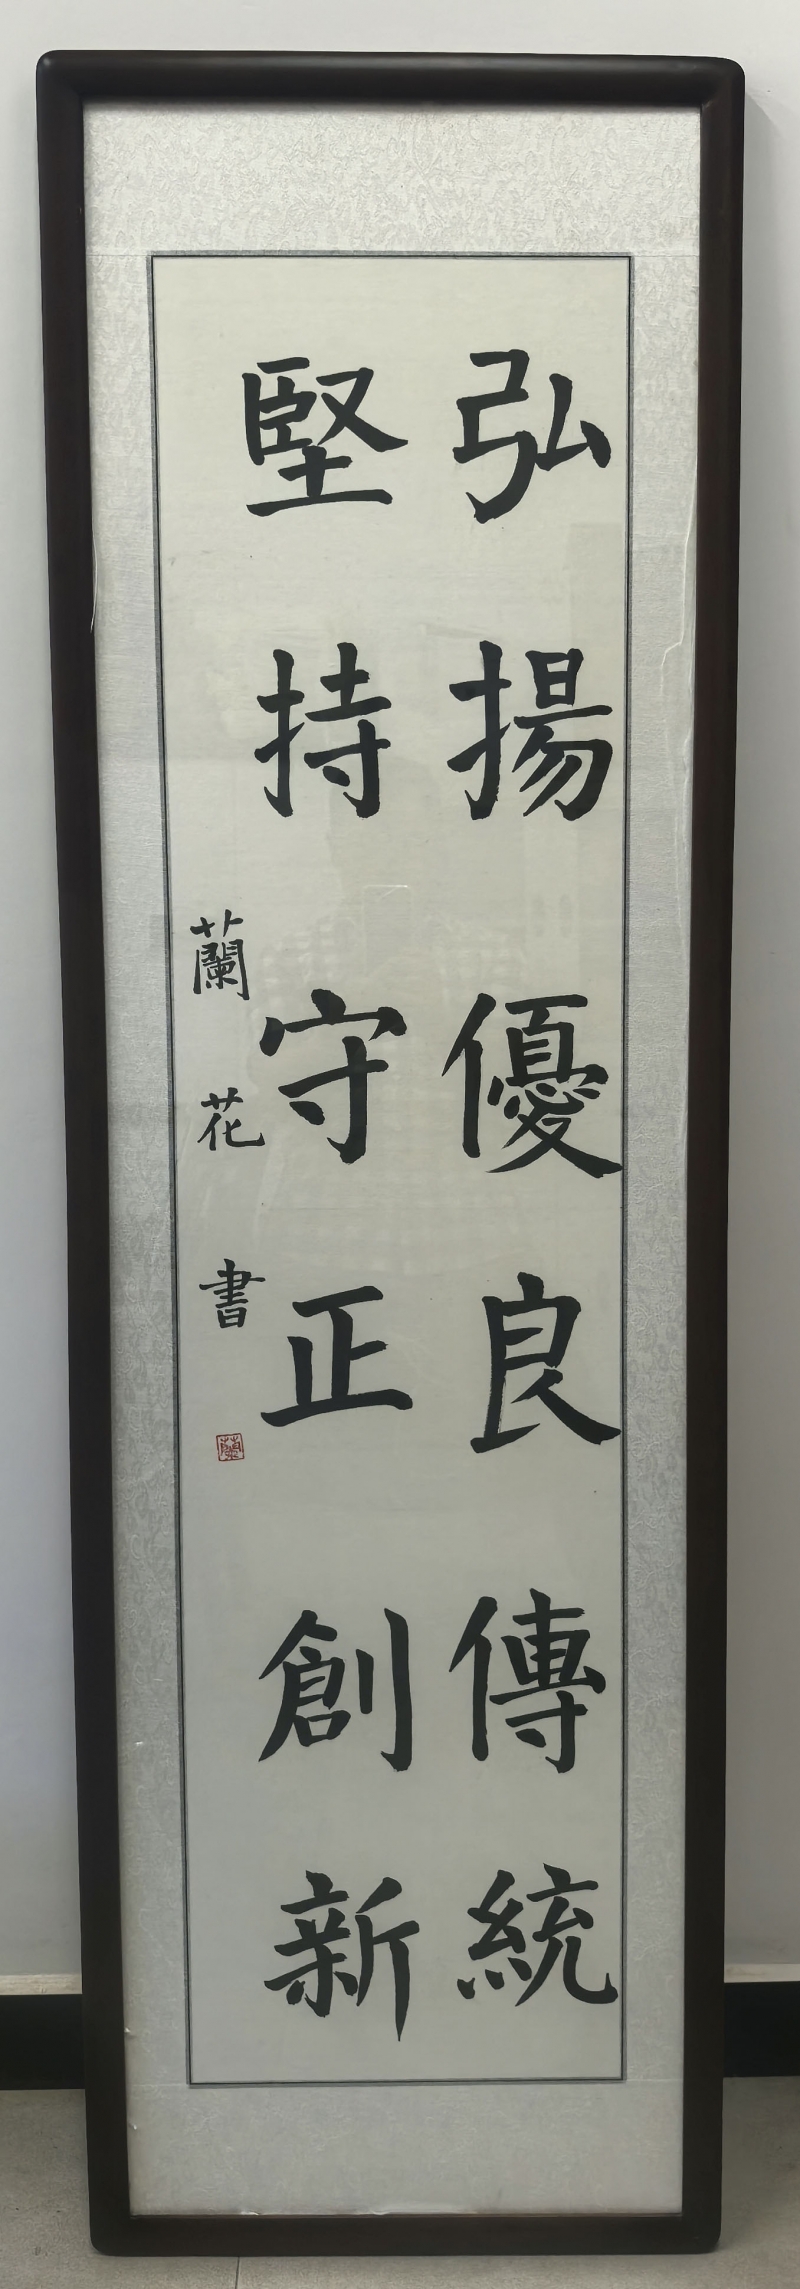 弘揚優良傳統
堅持守正創新
蘭花書
蘭